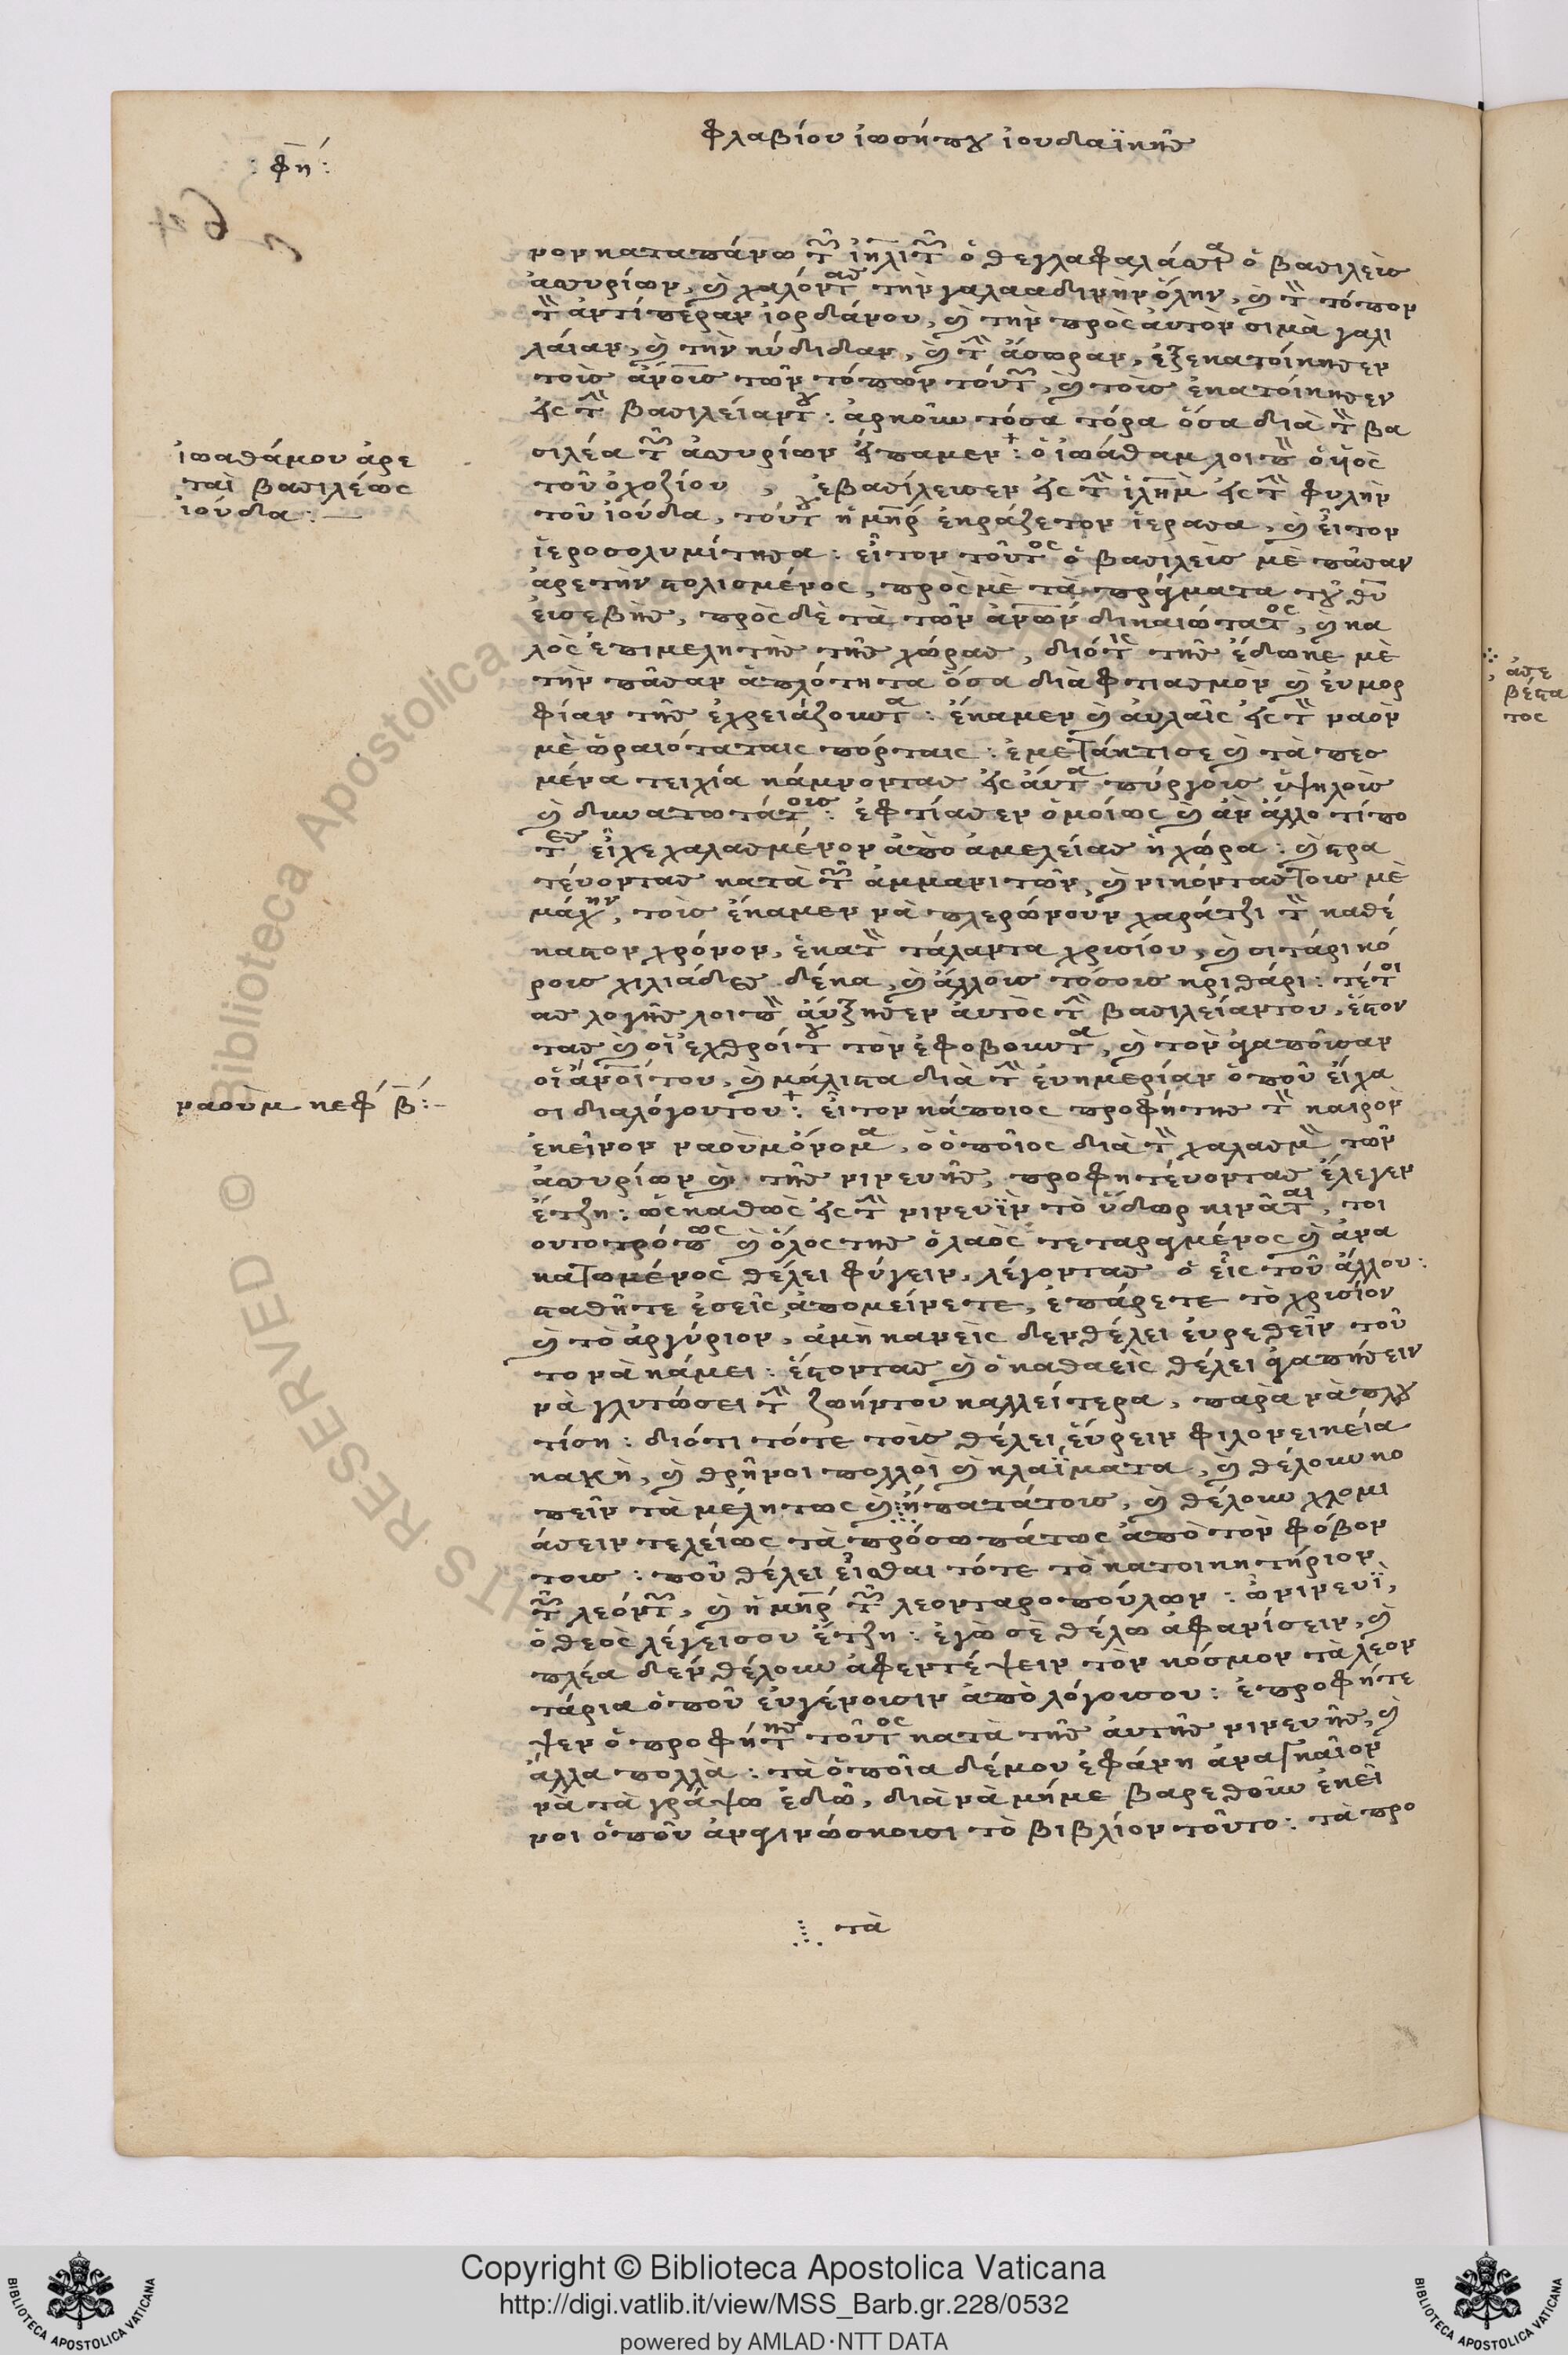 φλαβίου ἰωσήπου ἰουδαϊκῆς
: φη :
νον καταπάνω τῶν ἰηλιτῶν ὁ θεγλαφαλάσσαρ ὁ βασιλεὺς
ἀσυρίων, καὶ χαλόντας τὴν γαλααδινὴν ὅλην, καὶ τὸν τόπον
τὸν ἀντίπέραν ἰορδάνου, καὶ τὴν πρὸς ἀυτὸν σιμὰ γαλι
λάιαν, καὶ τὴν κύδιδαν, καὶ τὴν ἄσωραν, ἐξεκατοίκησεν
τοὺς ἀνους τῶν τόπων τούτων, καὶ τοὺς ἐκατοίκησεν
εἰς τὴν βασιλείαν του : ἀρκοῦν τόσα τόρα ὅσα διὰ τὸν βα
σιλέα τῶν ἀσυρίων εἴπαμεν : ὁ ἰωάθαμ λοιπὸν ὁ ὑιὸς
τοῦ ὀχοζίου , ἐβασίλευσεν εἰς τὴν ἰλημ εἰς τὴν φυλὴν
τοῦ ἰούδα, τούτου ἡ μηρ ἐκράζετον ἱερασα, καὶ εἶτον
ἱεροσολυμίτησα : εἶτον τοῦτος ὁ βασιλεὺς μὲ πᾶσαν
ἀρετὴν στολισμένος, πρὸς μὲ τὰ πράγματα τοῦ θυ
εὐσεβὴς, πρὸς δὲ τὰ τῶν ἀνων δικαιώτατος, καὶ κα
λὸς ἐπιμελητὴς τῆς χώρας, διότι τῆς ἔδωκε μὲ
τὴν πᾶσαν ἁπλότητα ὅσα διὰ φτιασμὸν καὶ ἐυμορ
φίαν τῆς ἐχρειάζουντα : ἔκαμεν καὶ ἀυλαῖς εἰς τὸν ναὸν
μὲ ὡραιόταταις πόρταις : ἐμεταέκτισε καὶ τὰ πεσ
μένα τειχία κάμνοντας εἰς ἀυτὰ πύργους ὑψηλοὺς
καὶ δυνατωτάτους : ἐφτίασεν ὁμοίως καὶ ἀν ἄλλο τίπο
τες εἶχε χαλασμένον ἀπὸ ἀμελείας ἡ χώρα : καὶ στρα
τέυοντας κατὰ τῶν ἀμμανιτῶν, καὶ νικόντας τους μὲ
μάχην, τοὺς ἔκαμεν νὰ πλερώνουν χαράτζι τὸν καθέ
καστον χρόνον, ἑκατὸν τάλαντα χρυσίου, καὶ σιτάρι κό
ρους χιλιάδες δέκα, καὶ ἄλλους τόσους κριθάρι : τέτοι
ας λογῆς λοιπὸν ἀύξησεν ἀυτὸς τὴν βασιλείαν του, ἔστον
τας καὶ οἱ ἐχθροί του τὸν ἐφοβουντα, καὶ τὸν ἀγαποῦσαν
οἱ ἀνοί του, καὶ μάλιστα διὰ τὴν ἐυημερίαν ὁποῦ εἶχα
σι διαλόγουντου : εἶτον κάποιος προφήτης τὸν καιρὸν
ἐκεῖνον ναοὺμ ὄνομα, ὁ ὁποῖος διὰ τὸν χαλασμὸν τῶν
ἀσυρίων καὶ τῆς νινευῆς, προφητέυοντας ἔλεγεν
ἔτζη : ὡς καθὼς εἰς τὴν νινευϊν τὸ ὕδωρ κινᾶται, τοι
ουτοτρόπως καὶ ὅλος της ὁ λαὸς τεταραγμένος καὶ ἀνα
κατωμένος θέλει φύγειν, λέγοντας ὁ εἷς τοῦ ἄλλου :
σταθῆτε ἐσεῖς ἀπομείνετε, ἐπάρετε τὸ χρυσίον
καὶ τὸ ἀργύριον, ἀμὴ κανεὶς δεν θέλει ἑυρεθεῖν τοῦ
το νὰ κάμει : ἔστοντας καὶ ὁ καθαεὶς θέλει ἀγαπήσειν
νὰ γλυτώσει τὴν ζωήν του καλλείτερα, παρὰ νὰ πλου
τίση : διότι τότε τοὺς θέλει ἕυρειν φιλονεικεία
κακὴ, καὶ θρῆνοι πολλοὶ καὶ κλαϊματα, καὶ θέλουν κο
πεῖν τὰ μέλητως καὶ ἥπατάτους, καὶ θέλουν χλομι
άσειν τελείως τὰ πρόσωπάτως ἀπὸ τὸν φόβον
τους : ποῦ θέλει εἶσθαι τότε τὸ κατοικητήριον
τῶν λεόντων, καὶ ἡ μηρ τῶν λεονταροπούλων : ὦ νινευϊ,
ὁ θεὸς λέγει σου ἔτζη : ἐγὼ σὲ θέλω ἀφανίσειν, καὶ
πλέα δὲν θέλουν ἀφεντέψειν τὸν κόσμον τὰ λεον
τάρια ὁποῦ ἐυγένουσιν ἀπὸ λόγουσου : ἐπροφήτε
ψεν ὁ προφήτης τοῦτος κατὰ τῆς ἀυτῆς νινευῆς, καὶ
ἄλλα πολλὰ : τὰ ὁποῖα δέμου ἐφάνη ἀναγκαῖον
νὰ τὰ γράψω ἐδῶ, διὰ νὰ μήμε βαρεθοῦν ἐκεῖ
νοι ὁποῦ ἀναγινώσκουσι τὸ βιβλίον τοῦτο : τὰ προ
τὰ
ἰωαθάμου ἀρε
ταὶ βασιλέως
ἰούδα :
ναοὺμ κεφ β :
ἀσε
βέστα
τος
Copyright © Biblioteca Apostolica Vaticana
http://digi.vatlib.it/view/MSS_Barb.gr.228/0532
powered by AMLAD·NTT DATA
BIBLIOTECA APOSTOLICA VATICANA
BIBLIOTECA APOSTOLICA VATICANA